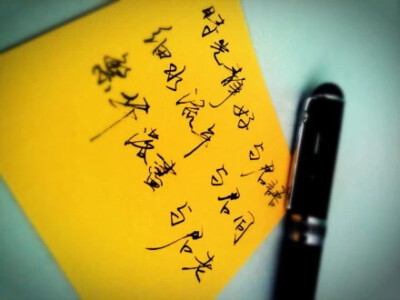 时光静好 与君語
细水流年 与君同
繁华落盡 与君老